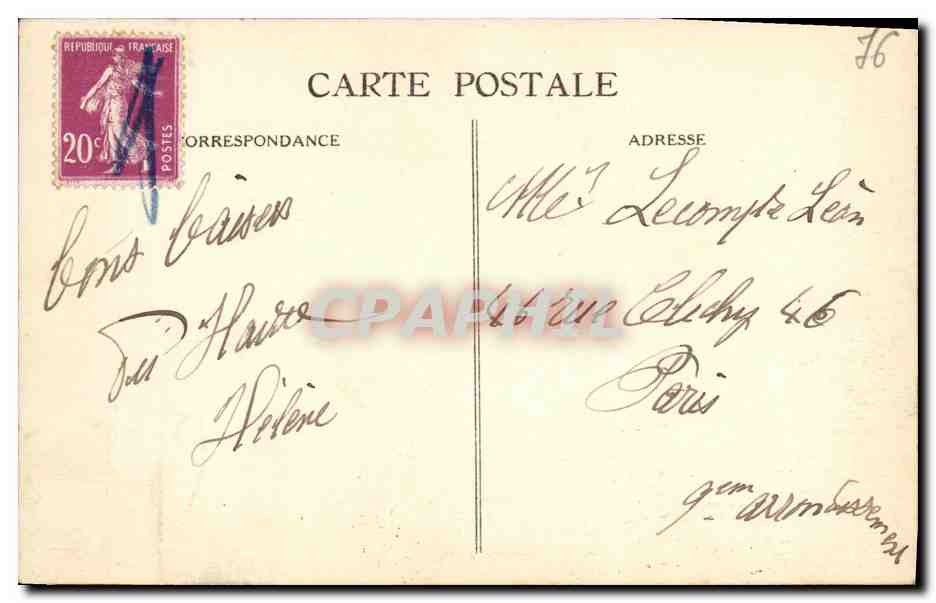 REPUBLIQUE FRANÇAISE
20c
POSTES
76
CARTE POSTALE
CORRESPONDANCE
ADRESSE
bons baisers
du Havre
Hélène
Lecompte Léon
46 rue Clichy 46
Paris
9em arrondissement
CPAPHIL